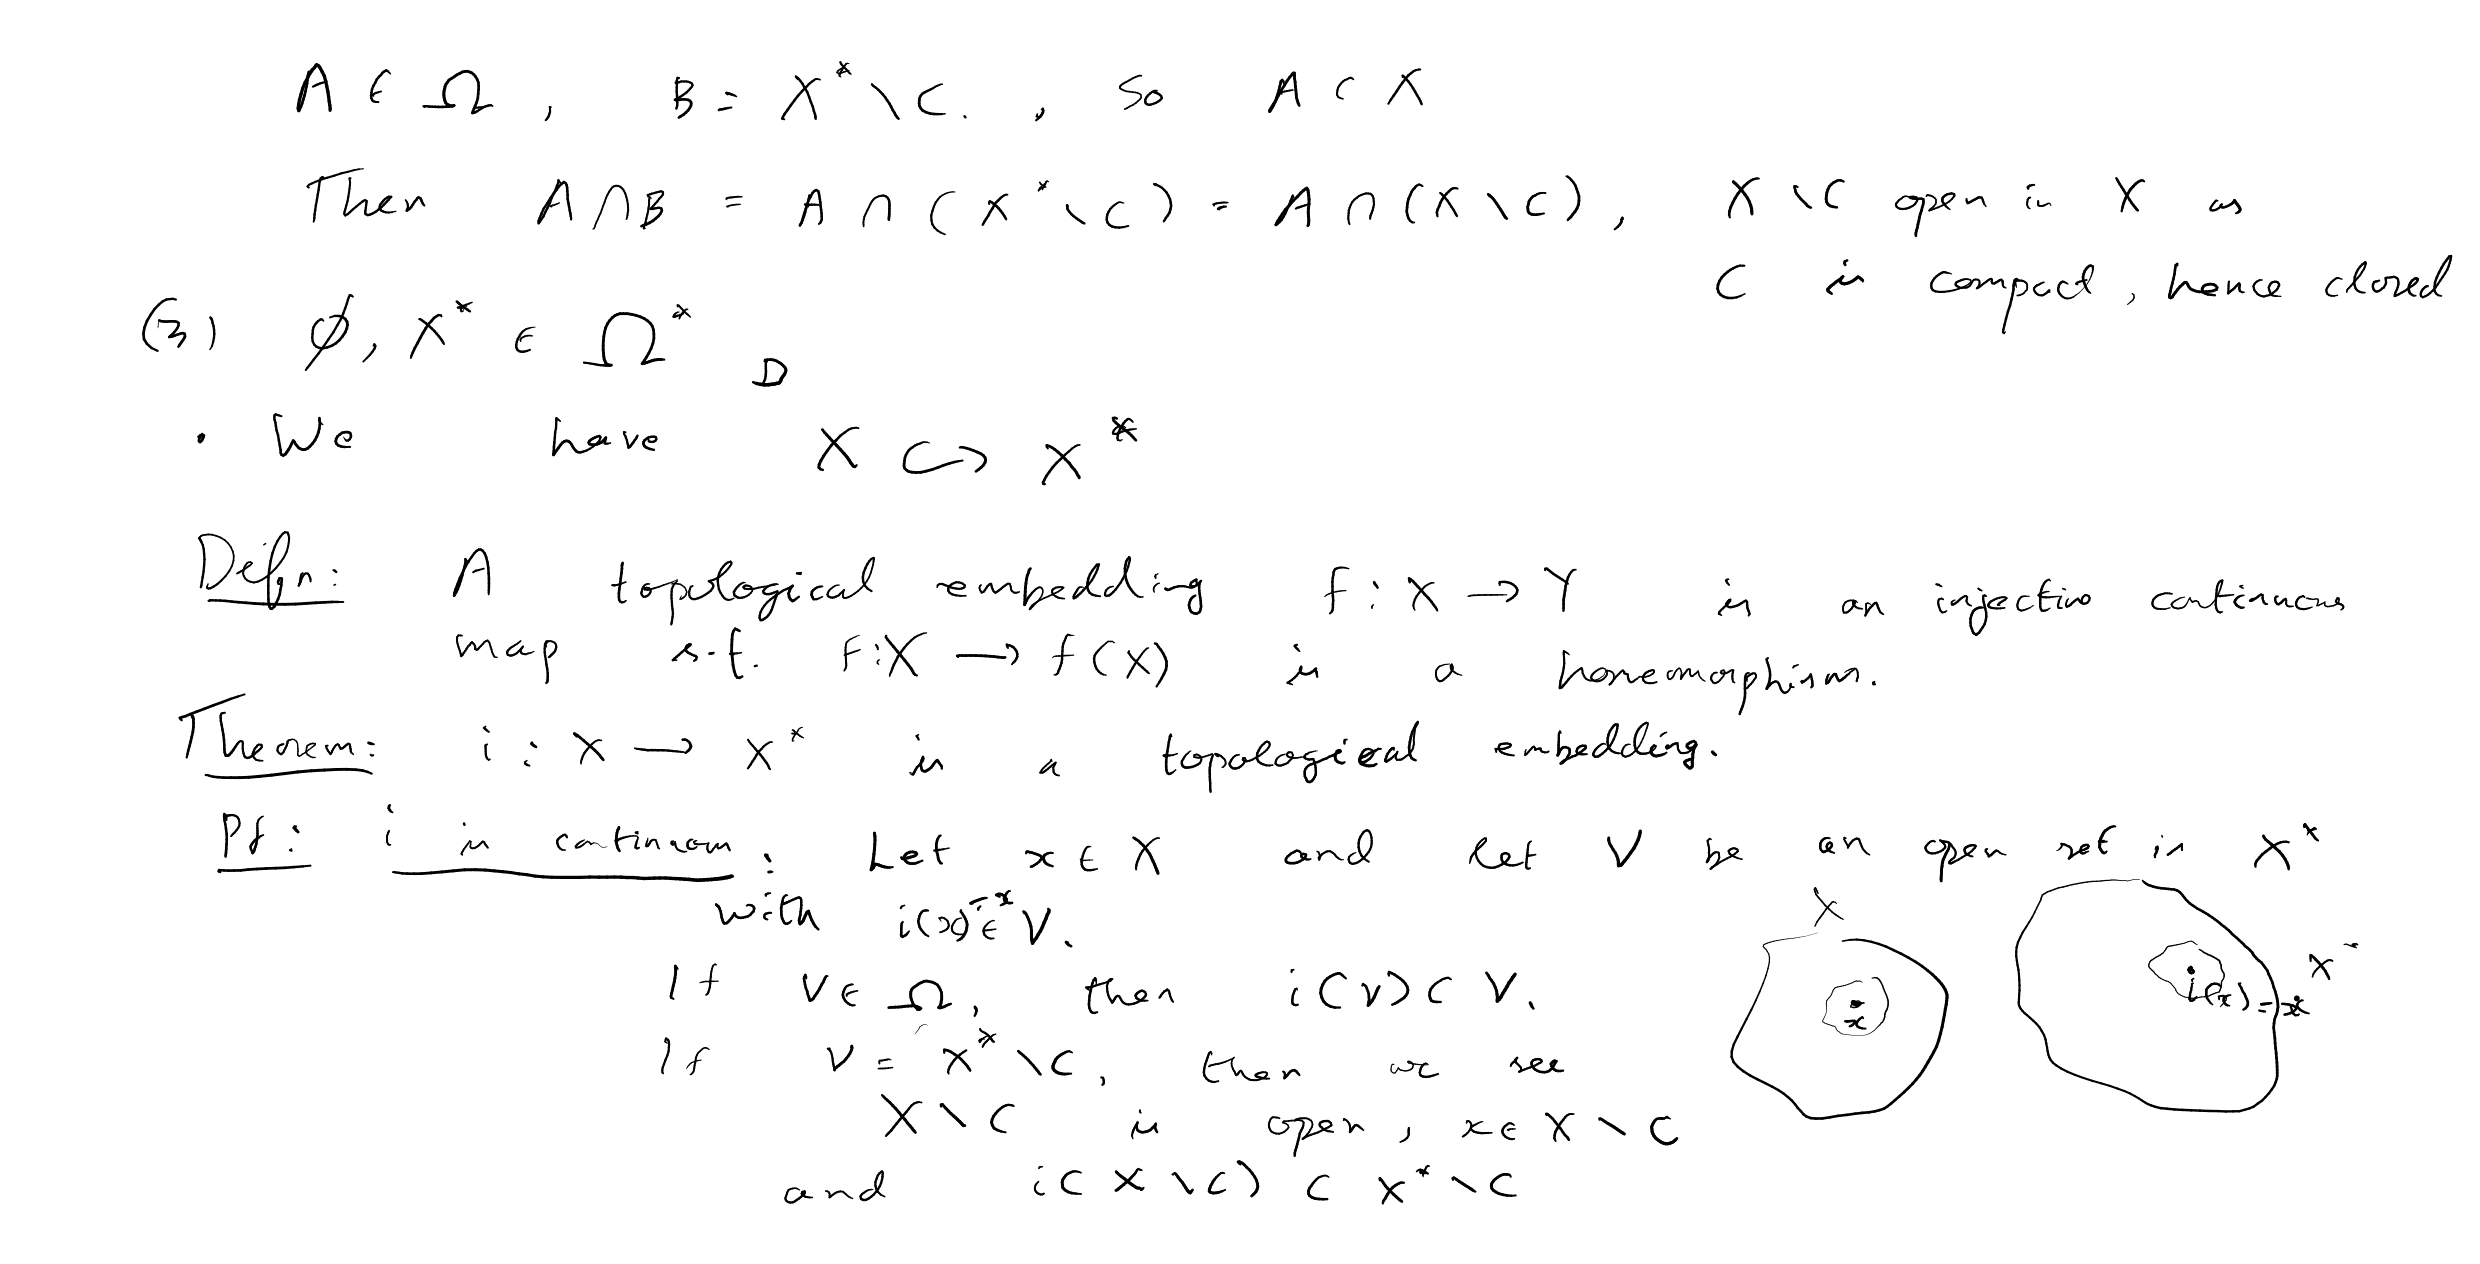 A ∈ Ω , B = X* \ C. , So A ⊂ X
Then A ∩ B = A ∩ (X* \ C) = A ∩ (X \ C), X \ C open in X as
C is compact, hence closed
(3) ∅, X* ∈ Ω* D
• We have X ↪ X*
Defn: A topological embedding f : X → Y is an injective continuous
map s.t. f : X → f(X) is a homeomorphism.
Theorem: i : X → X* is a topological embedding.
Pf: i is continuous : Let x ∈ X and let V be an open set in X*
with i(x) = x ∈ V.
X
If V ∈ Ω, then i(V) ⊂ V.
x
i(x) = x
X*
If V = X* \ C, then we see
X \ C is open, x ∈ X \ C
and i(X \ C) ⊂ X* \ C